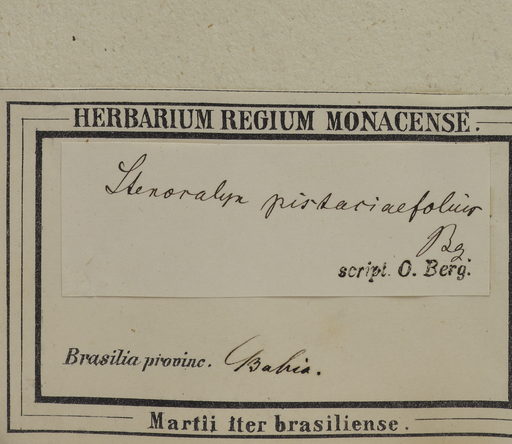 HERBARIUM REGIUM MONACENSE.
Stenocalyx pistaciaefolius
Bg
script. O. Berg.
Brasilia provinc. Bahia.
Martii iter brasiliense.